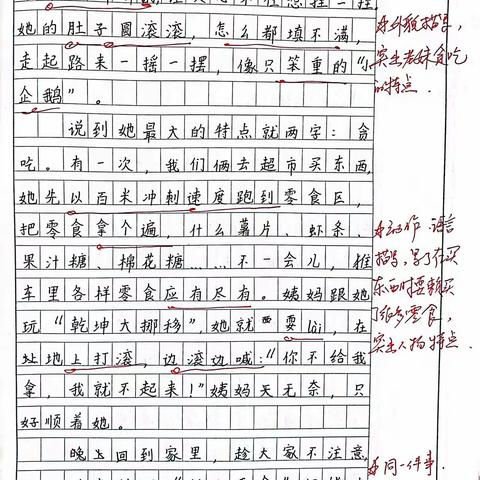 她的肚子圆滚滚，怎么都填不满，
走起路来一摇一摆，像只笨重的“小
企鹅”。
说到她最大的特点就两字：贪
吃。有一次，我们俩去超市买东西，
她先以百米冲刺速度跑到零食区，
把零食拿个遍，什么薯片、虾条、
果汁糖、棉花糖……不一会儿，推
车里各样零食应有尽有。姨妈跟她
玩“乾坤大挪移”，她就耍lài，在
地上打滚，边滚边喊：“你不给我
拿，我就不起来！”姨妈无奈，只
好顺着她。
晚上回到家里，趁大家不注意
突出表妹贪吃
的特点.
动作 语言
描写，
东西时
了很多零食，
突出人物特点.
同一件事.